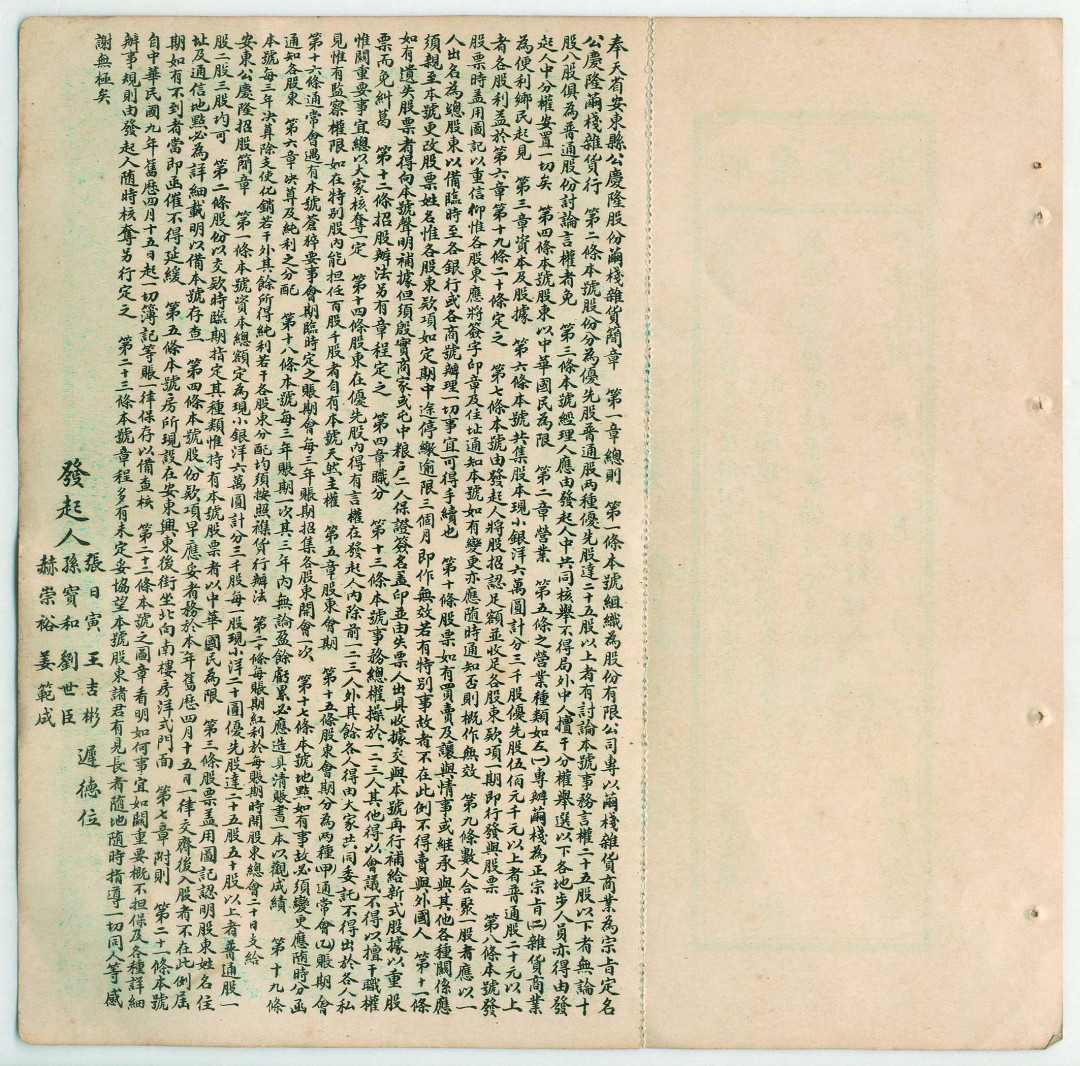 奉天省安東縣公慶隆股份繭棧雜貨簡章　第一章總則　第一條本號組織為股份有限公司專以繭棧雜貨商業為宗旨定名
公慶隆繭棧雜貨行　第二條本號股份分為優先股普通股兩種優先股達二十五股以上者有討論本號事務言權二十五股以下者無論十
股八股俱為普通股份討論言權者免　第三條本號經理人應由發起人中共同核舉不得局外中人擅干分權舉選以下各地步人員亦得由發
起人中分權安置一切矣　第四條本號股東以中華國民為限　第二章營業　第五條之營業種類如左㈠專辦繭棧為正宗旨㈡雜貨商業
為便利鄉民起見　第三章資本及股據　第六條本號共集股本現小銀洋六萬圓計分三千股優先股伍佰元千元以上者普通股二十元以上
者各股利益於第六章第十九條二十條定之　第七條本號由發起人將股招認足額並收足各股東欵項一期即行發與股票　第八條本號發
股票時盖用圖記以重信柳惟各股東應將簽字印章及住址通知本號如有變更亦應隨時通知否則概作無效　第九條數人合聚一股者應以一
人出名為總股東以備臨時至各銀行或各商號辦理一切事宜可得手續也　第十條股票如有買賣及讓與情事或継承與其他各種關係應
須親至本號更改股票姓名惟各股東欵項如定期中途停繳逾限三個月即作無效若有特別事故者不在此例不得賣與外國人　第十一條
如有遺失股票者得向本號聲明補據但須殷實商家或屯中粮户二人保證簽名盖印並由失票人出具收據交與本號再行補給新式股據以重股
票而免糾葛　第十二條招股辦法另有章程定之　第四章職分　第十三條本號事務總權操於一二三人其他得以會議不得以擅干職權
惟關重要事宜總以大家核奪一定　第十四條股東在優先股內得有言權在發起人內除前一二三人外其餘各人得由大家共同委託不得出於各人私
見惟有監察權限如在特別股內能担任百股千股者自有本號天然主權　第五章股東會期　第十五條股東會期分為兩種㈙通常會㈚賬期會
第十六條通常會遇有本號蒼猝要事會期臨時定之賬期會每三年賬期招集各股東開會一次　第十七條本號地點如有事故必須變更應隨時分函
通知各股東　第六章决算及純利之分配　第十八條本號每三年賬期一次其三年內無論盈餘虧累必應造具清賬書一本以觀成績　第十九條
本號每三年决算除支使化銷若干外其餘所得純利若干各股東分配均須按照襍貨行辦法　第二十條每賬期紅利於每賬期時開股東總會二十日支給
安東公慶隆招股簡章　第一條本號資本總額定為現小銀洋六萬圓計分三千股每一股現小洋二十圓優先股達二十五股五十股以上者普通股一
股二股三股均可　第二條股份以交欵時臨期指定其種類惟持有本號股票者以中華國民為限　第三條股票盖用圖記認明股東姓名住
址及通信地點必為詳細載明以備本號存查　第四條本號股份欵項早應妥者務於本年舊歷四月十五日一律交齊後入股者不在此例屆
期如有不到者當即函催不得延緩　第五條本號房所現設在安東興東後街坐北向南樓房洋式門面　第七章附則　第二十一條本號
自中華民國九年舊歷四月十五日起一切簿記等賬一律保存以備查核　第二十二條本號之圖章看明如何事宜如關重要概不担保及各種詳細
辦事規則由發起人隨時核奪另行定之　第二十三條本號章程多有未定妥協望本號股東諸君有見長者隨地隨時指導一切同人等感
謝無極矣
發起人
張日寅　王吉彬　遲德位
孫寳和　劉世臣
赫崇裕　姜範成